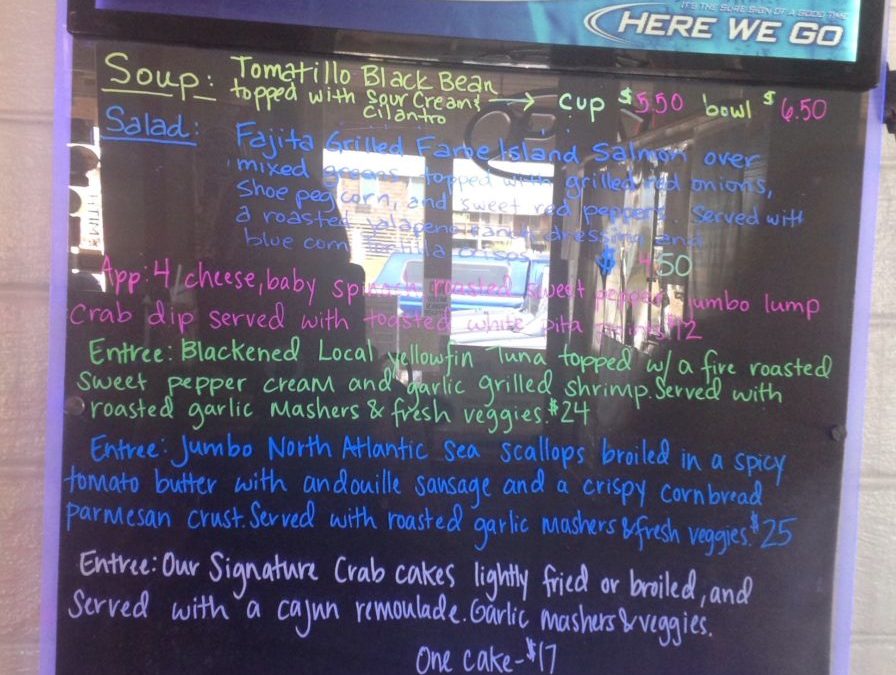 IT'S THE SURE SIGN OF A GOOD TIME
HERE WE GO
Soup: Tomatillo Black Bean
topped with Sour Cream &
Cilantro
→ cup $5.50 bowl $6.50
Salad: Fajita Grilled Faroe Island Salmon over
mixed greens topped with grilled red onions,
shoe peg corn, and sweet red peppers. Served with
a roasted jalapeno ranch dressing and
blue corn tortilla crisps. $ 50
App: 4 cheese, baby spinach roasted sweet pepper jumbo lump
Crab dip served with toasted white pita points $12
Entree: Blackened Local yellowfin Tuna topped w/ a fire roasted
sweet pepper cream and garlic grilled shrimp. Served with
roasted garlic Mashers & fresh veggies. $24
Entree: Jumbo North Atlantic Sea scallops broiled in a spicy
tomato butter with andouille sausage and a crispy cornbread
parmesan crust. Served with roasted garlic Mashers & fresh veggies. $25
Entree: Our Signature Crab cakes lightly fried or broiled, and
Served with a cajun remoulade. Garlic mashers & veggies.
One cake - $17